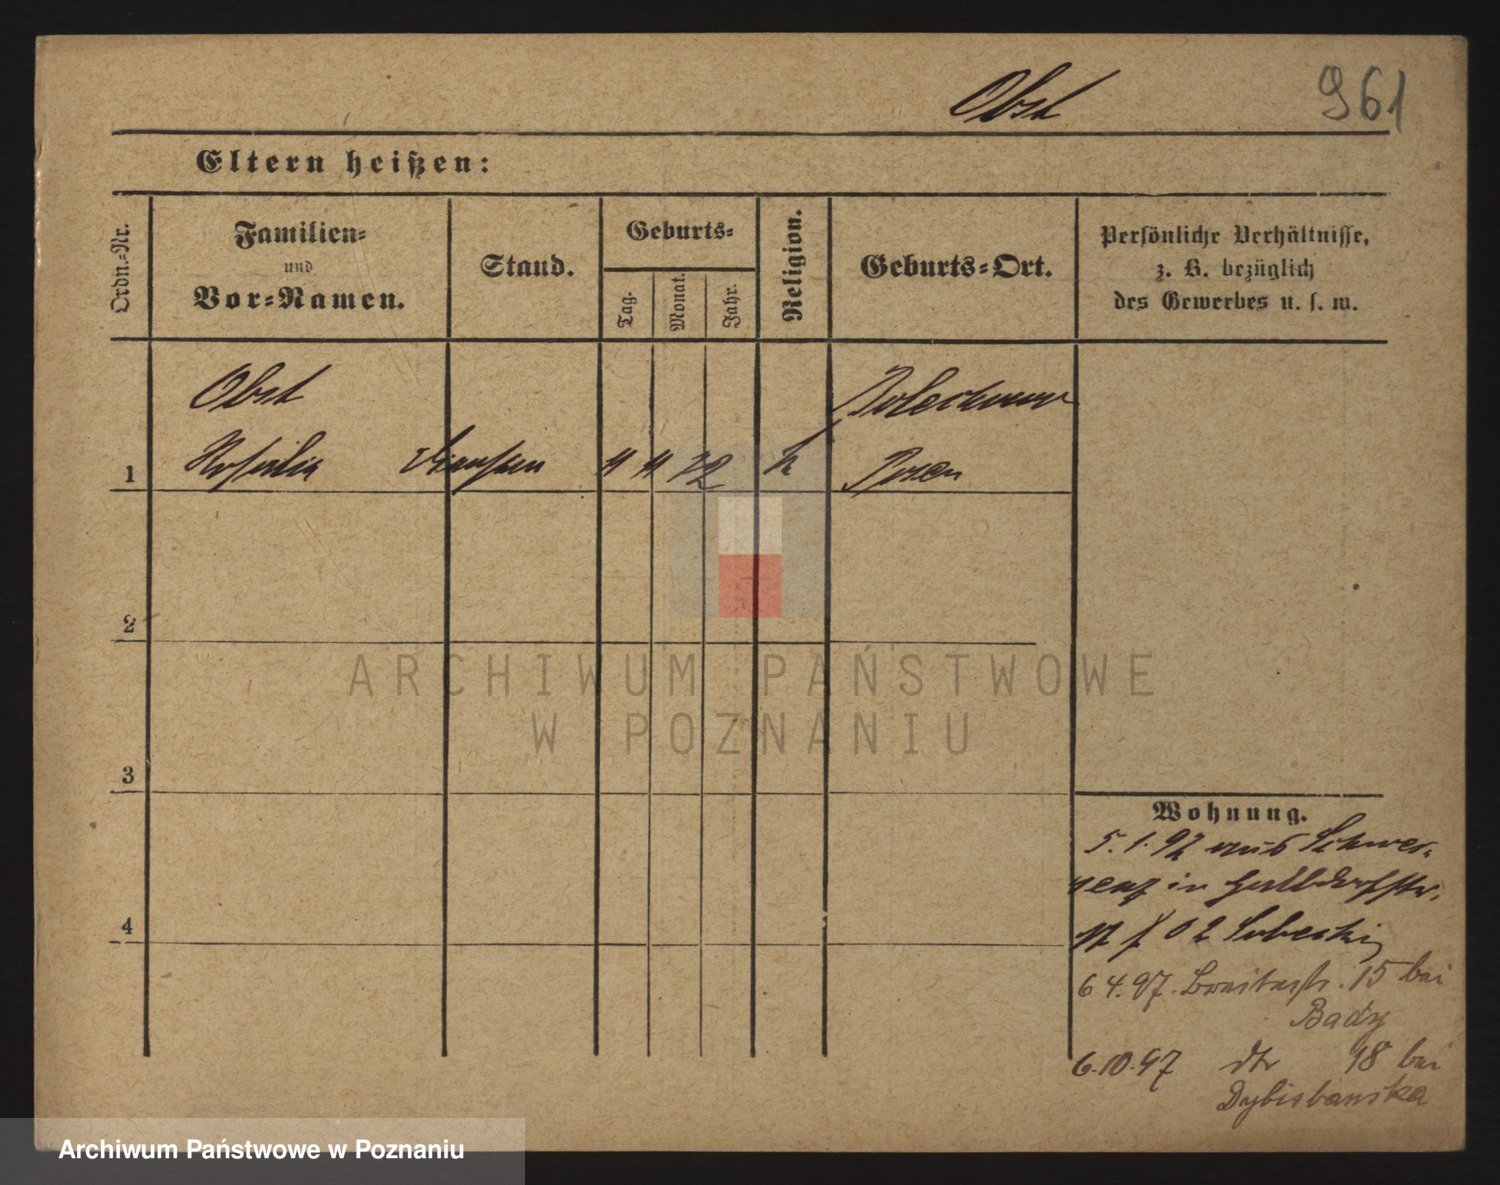 Obst 961
Eltern heißen:
Ordn.-Nr.
Familien-
und
Vor-Namen.
Stand.
Geburts-
Tag.
Monat.
Jahr.
Religion.
Geburts-Ort.
Persönliche Verhältnisse,
z. B. bezüglich
des Gewerbes u. s. w.
Obst
1 Rosalia
Posen
2
3
4
ARCHIWUM PAŃSTWOWE
W POZNANIU
Wohnung.
5.1.92 aus Schwer-
senz in
6 4.97. Breitestr. 15 bei
Bady
6.10.97 dto 18 bei
Dybisbanska
Archiwum Państwowe w Poznaniu